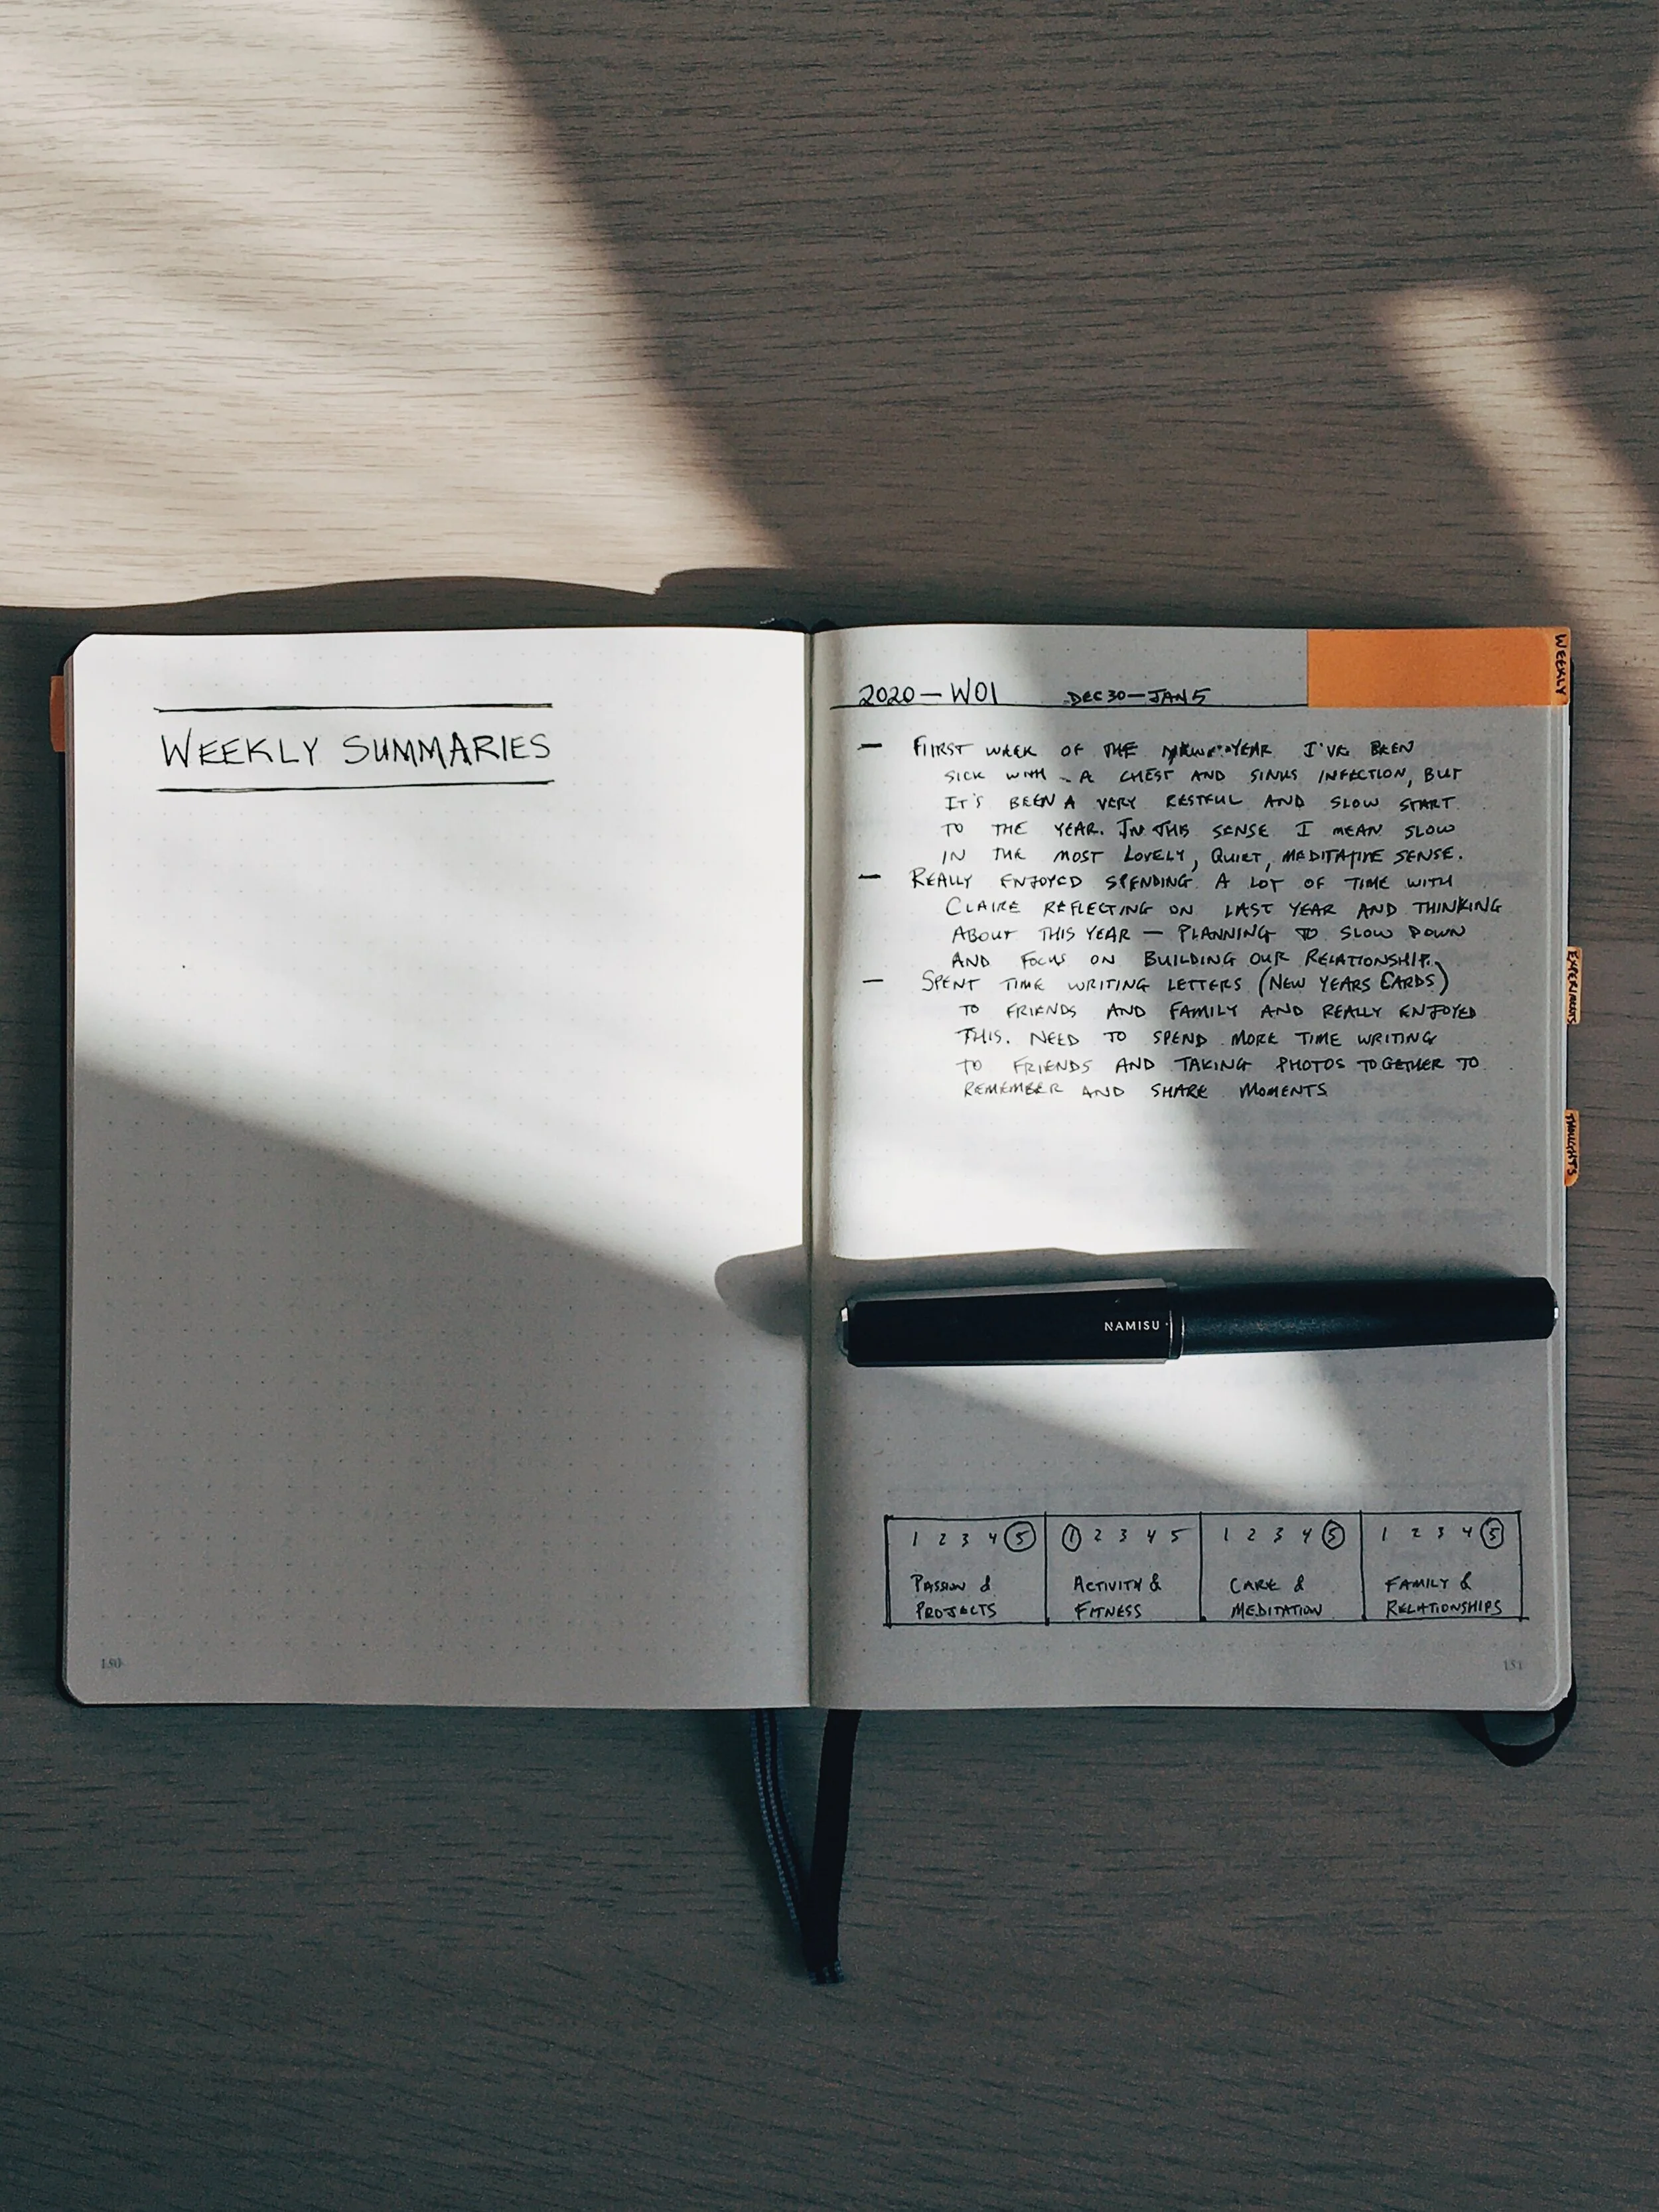 WEEKLY SUMMARIES
150
WEEKLY
2020 — W01 DEC 30 — JAN 5
— FIRST WEEK OF THE YEAR I'VE BEEN
SICK WITH A CHEST AND SINUS INFECTION, BUT
IT'S BEEN A VERY RESTFUL AND SLOW START
TO THE YEAR. IN THIS SENSE I MEAN SLOW
IN THE MOST LOVELY, QUIET, MEDITATIVE SENSE.
— REALLY ENJOYED SPENDING A LOT OF TIME WITH
CLAIRE REFLECTING ON LAST YEAR AND THINKING
ABOUT THIS YEAR — PLANNING TO SLOW DOWN
AND FOCUS ON BUILDING OUR RELATIONSHIP.
— SPENT TIME WRITING LETTERS (NEW YEARS CARDS)
TO FRIENDS AND FAMILY AND REALLY ENJOYED
THIS. NEED TO SPEND MORE TIME WRITING
TO FRIENDS AND TAKING PHOTOS TOGETHER TO
REMEMBER AND SHARE MOMENTS
EXPERIMENTS
THOUGHTS
NAMISU
1 2 3 4 5
PASSION &
PROJECTS
1 2 3 4 5
ACTIVITY &
FITNESS
1 2 3 4 5
CARE &
MEDITATION
1 2 3 4 5
FAMILY &
RELATIONSHIPS
151